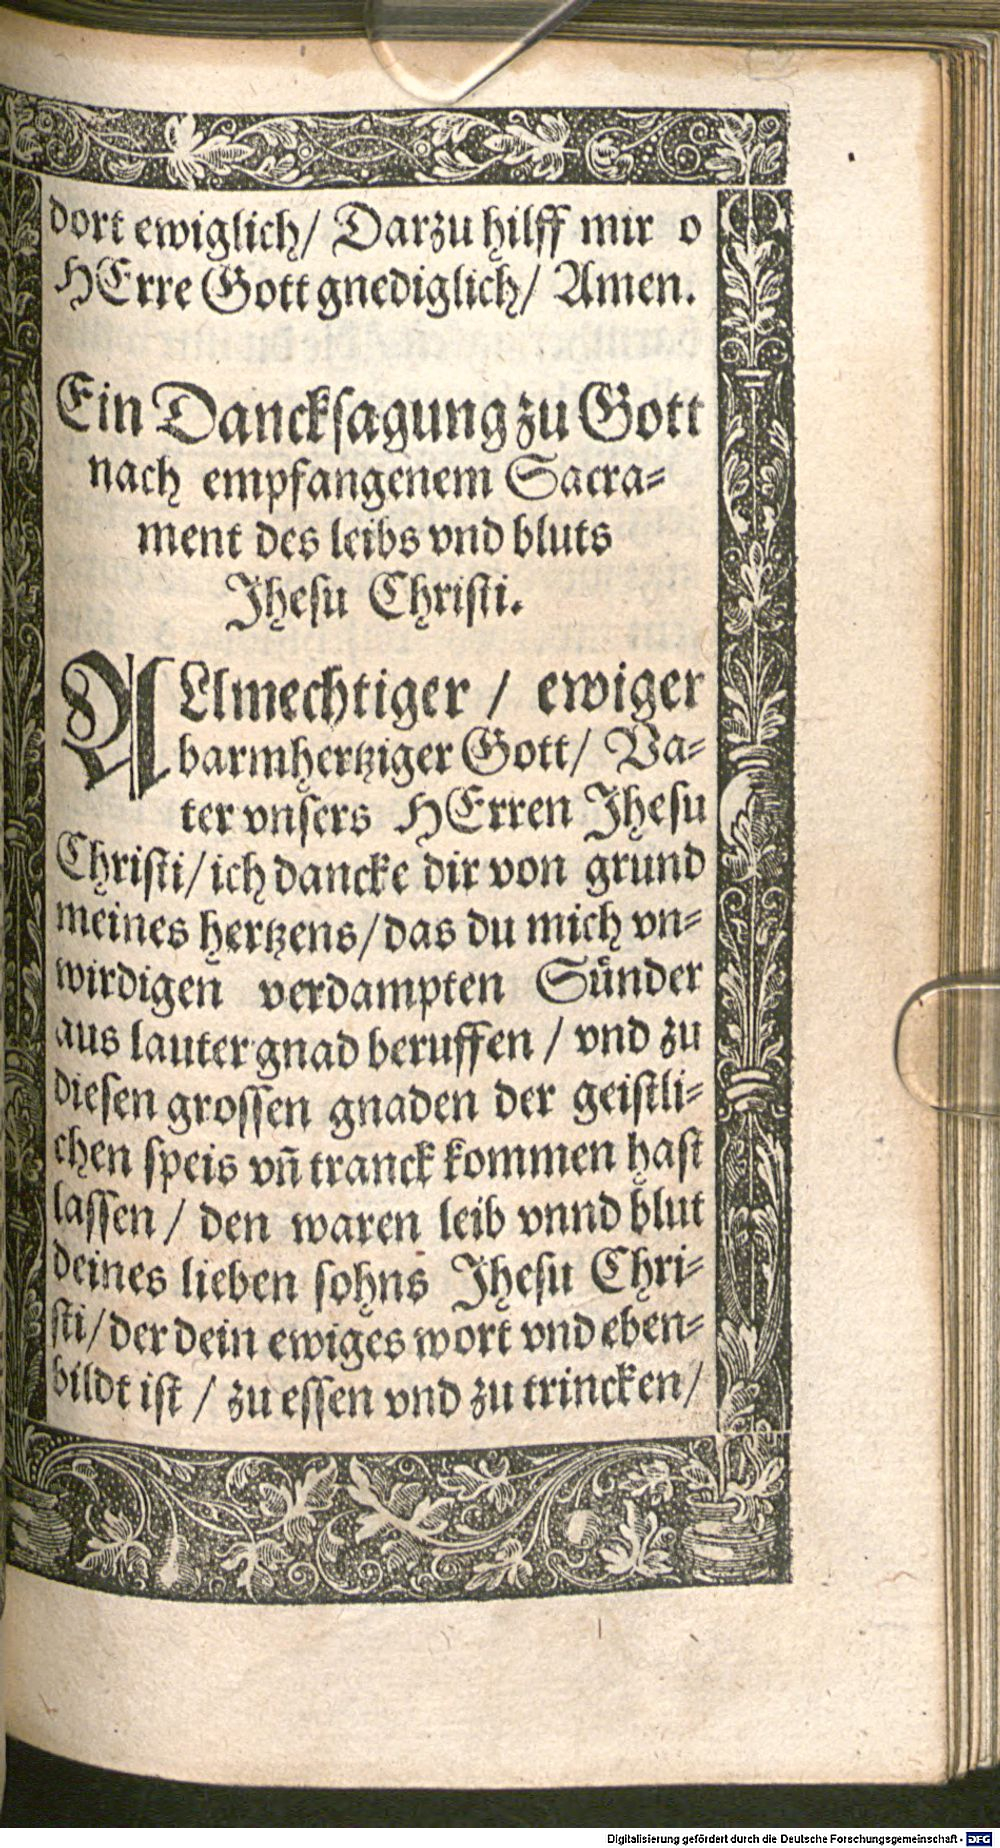 dort ewiglich/ Darzu hilff mir o
HErre Gott gnediglich/ Amen.
Ein Dancksagung zu Gott
nach empfangenem Sacra-
ment des leibs vnd bluts
Jhesu Christi.
ALlmechtiger / ewiger
barmhertziger Gott/ Va-
ter vnsers HErren Jhesu
Christi/ ich dancke dir von grund
meines hertzens/ das du mich vn-
wirdigen verdampten Sünder
aus lauter gnad beruffen / vnd zu
diesen grossen gnaden der geistli-
chen speis vñ tranck kommen hast
lassen / den waren leib vnnd blut
deines lieben sohns Jhesu Chri-
sti/ der dein ewiges wort vnd eben-
bildt ist / zu essen vnd zu trincken/
Digitalisierung gefördert durch die Deutsche Forschungsgemeinschaft - DFG